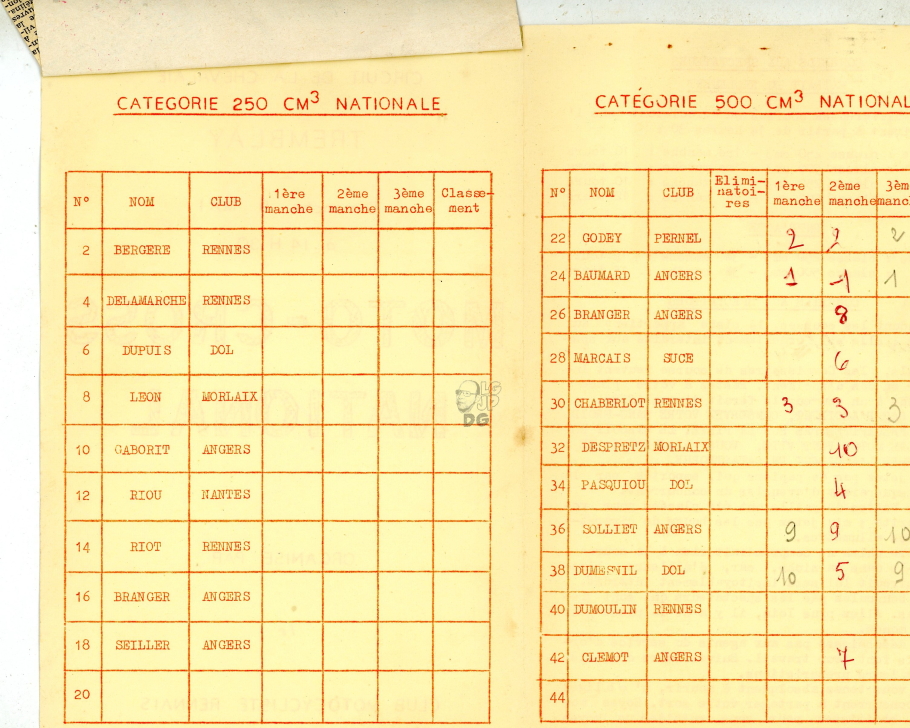 CATEGORIE 250 CM3 NATIONALE
N° NOM CLUB 1ère manche 2ème manche 3ème manche Classe-ment
2 BERGERE RENNES
4 DELAMARCHE RENNES
6 DUPUIS DOL
8 LEON MORLAIX
10 GABORIT ANGERS
12 RIOU NANTES
14 RIOT RENNES
16 BRANGER ANGERS
18 SEILLER ANGERS
20
LG
JP
DG
CATÉGORIE 500 CM3 NATIONAL
N° NOM CLUB Elimi-natoi-res 1ère manche 2ème manche 3èm manc
22 GODEY PERNEL 2 2 2
24 BAUMARD ANGERS 1 1 1
26 BRANGER ANGERS 8
28 MARCAIS SUCE 6
30 CHABERLOT RENNES 3 3 3
32 DESPRETZ MORLAIX 10
34 PASQUIOU DOL 4
36 SOLLIET ANGERS 9 9 10
38 DUMESNIL DOL 10 5 9
40 DUMOULIN RENNES
42 CLEMOT ANGERS 7
44